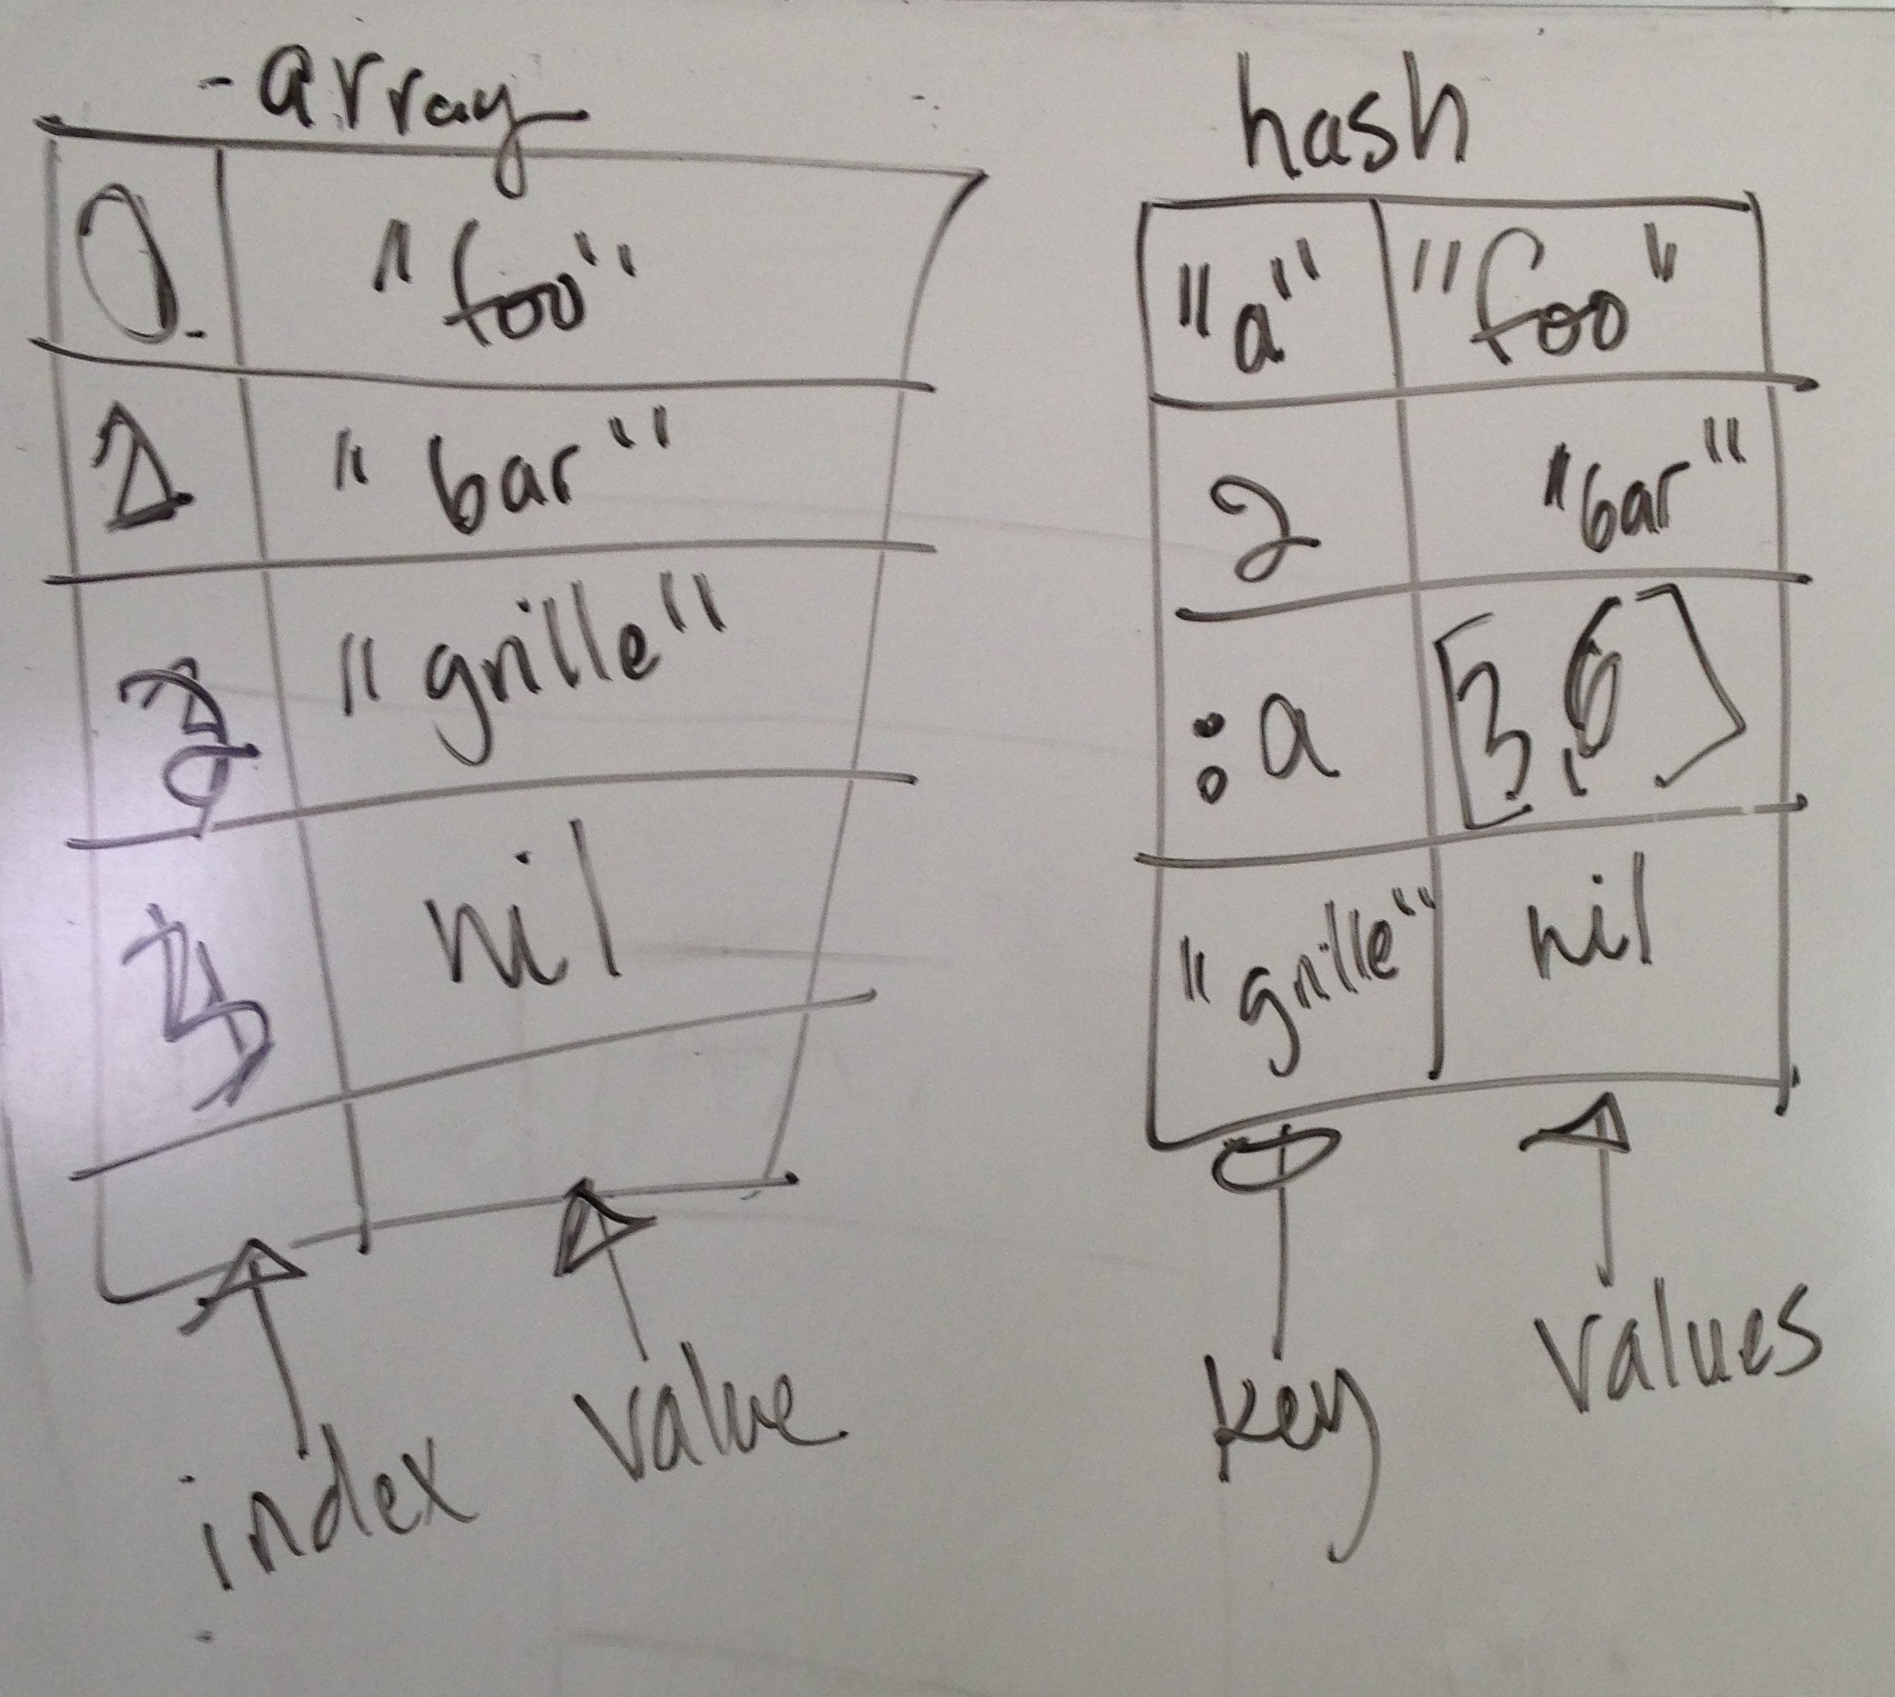 array
0 "foo"
1 "bar"
2 "grille"
3 nil
index value
hash
"a" "foo"
2 "bar"
:a [3,6]
"grille" nil
key values